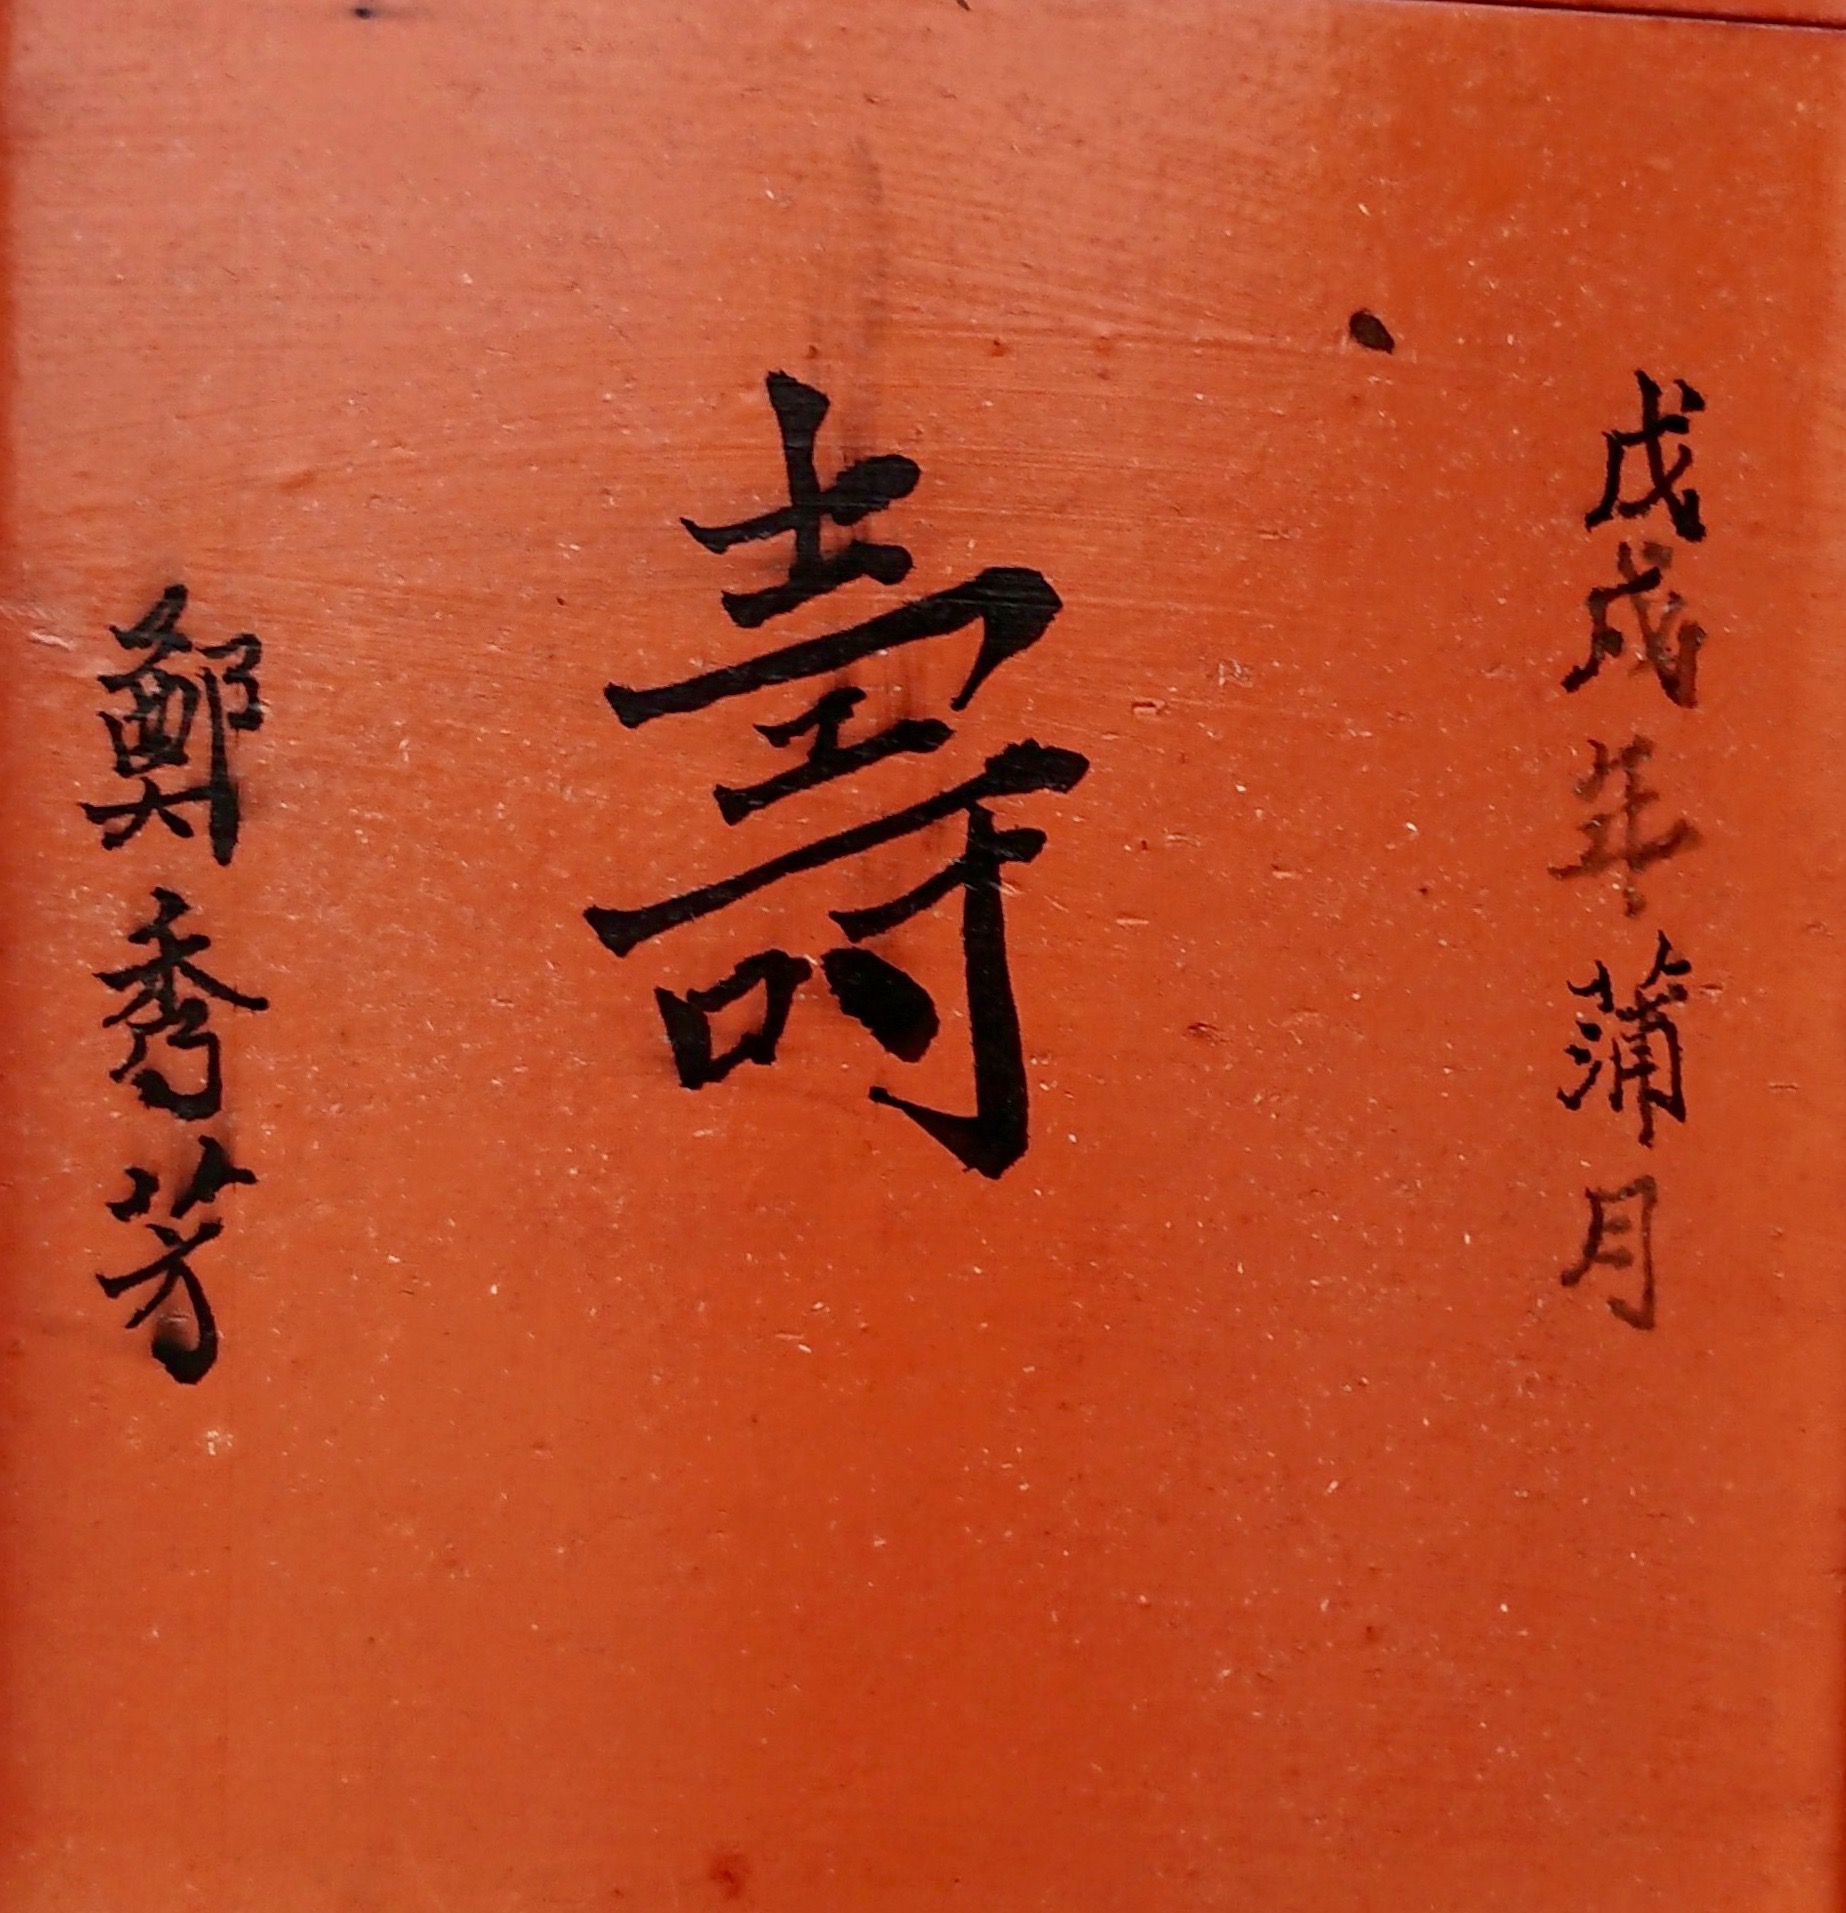 戊戌年蒲月
壽
鄭秀芳